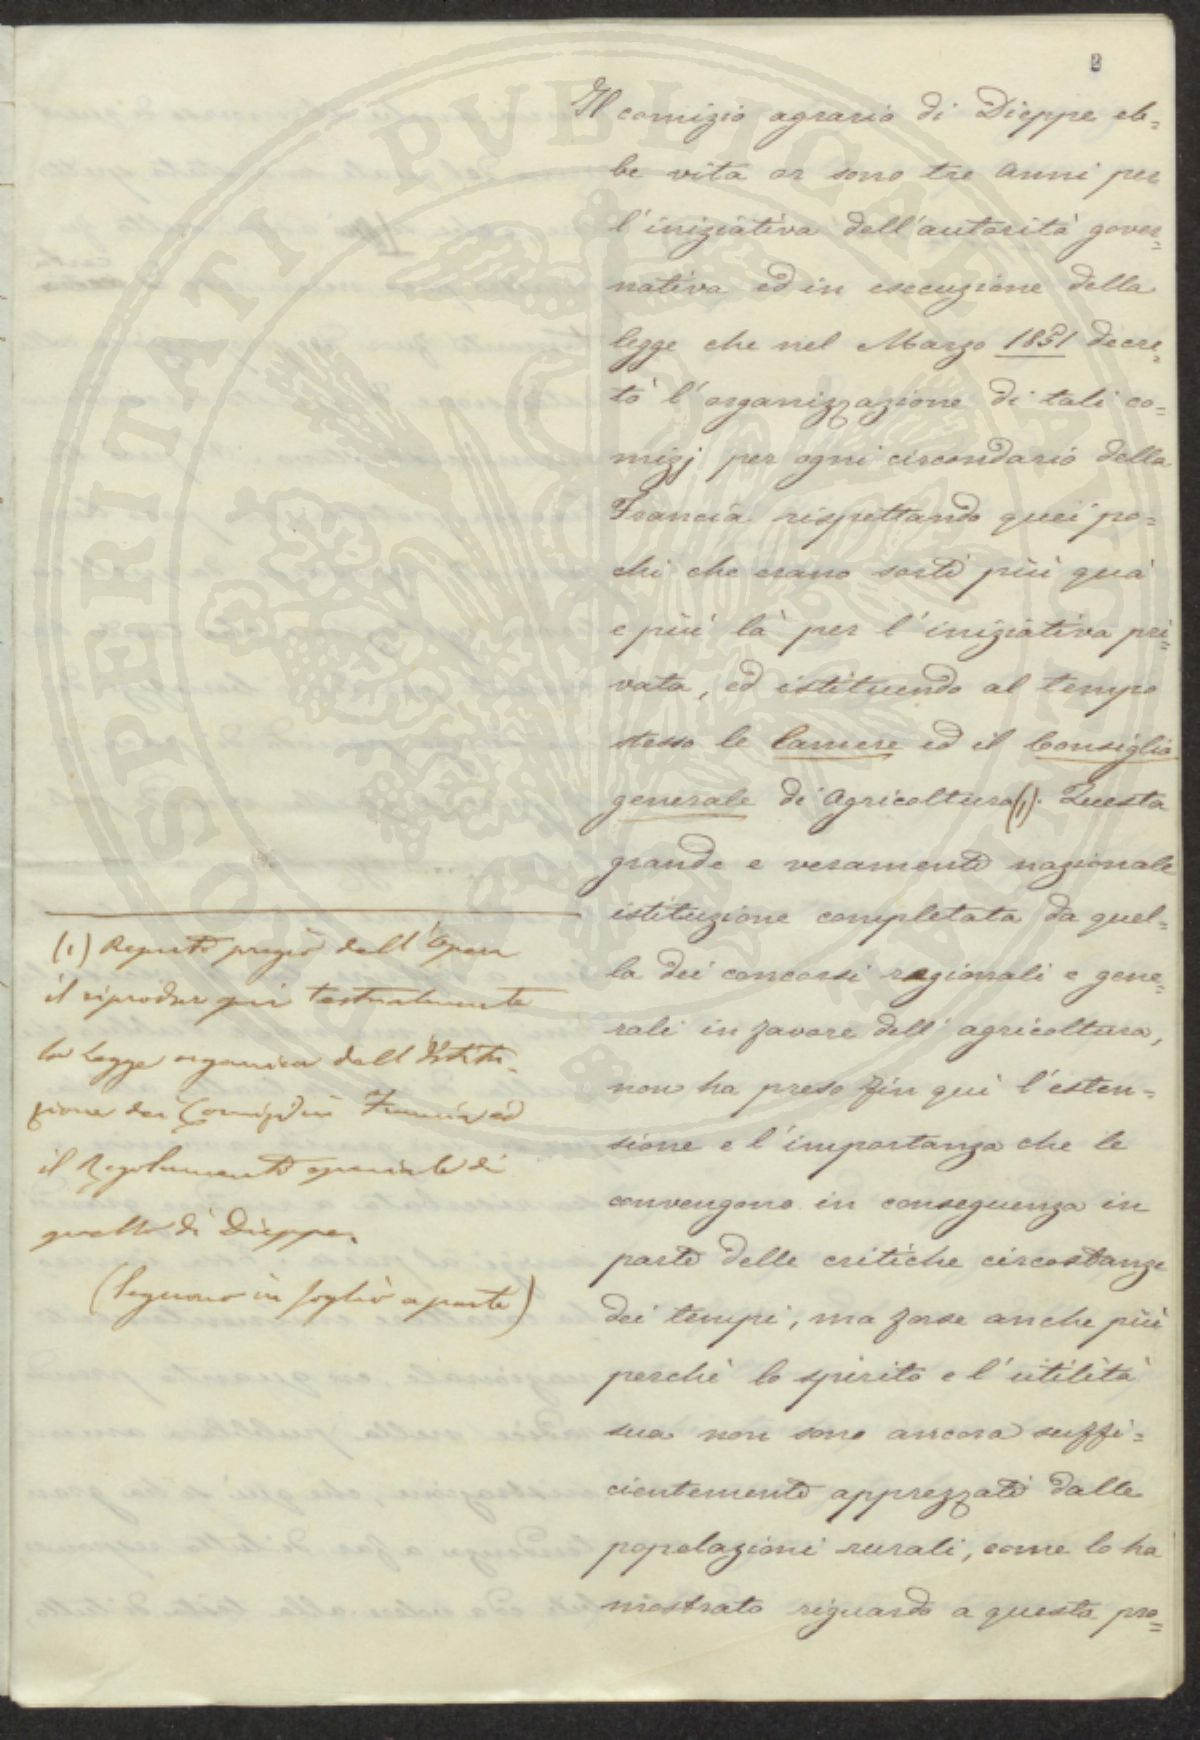 2
Il comizio agrario di Dieppe eb=
be vita or sono tre anni per
l'iniziativa dell'autorità gover=
nativa ed in esecuzione della
legge che nel Marzo 1851 decre=
tò l'organizzazione di tali co=
mizj per ogni circondario della
Francia rispettando quei po=
chi che erano sorti più quà
e più là per l'iniziativa pri=
vata, ed istituendo al tempo
stesso le Camere ed il Consiglio
generale di Agricoltura (1). Questa
grande e veramente nazionale
istituzione completata da quel=
la dei concorsi regionali e gene=
rali in favore dell'agricoltura,
non ha preso fin qui l'esten=
sione e l'importanza che le
convengono in conseguenza in
parte delle critiche circostanze
dei tempi, ma forse anche più
perchè lo spirito e l'utilità
sua non sono ancora suffi=
cientemente apprezzati dalle
popolazioni rurali, come lo ha
mostrato riguardo a questa pro=
(1) Reputo pregio dell'Opera
il riprodur quì testualmente
la Legge organica dell'Istitu-
zione dei Comizi in Francia ed
il Regolamento speciale di
quello di Dieppe.
(Seguono in foglio a parte)
PROSPERITATI PUBLICAE